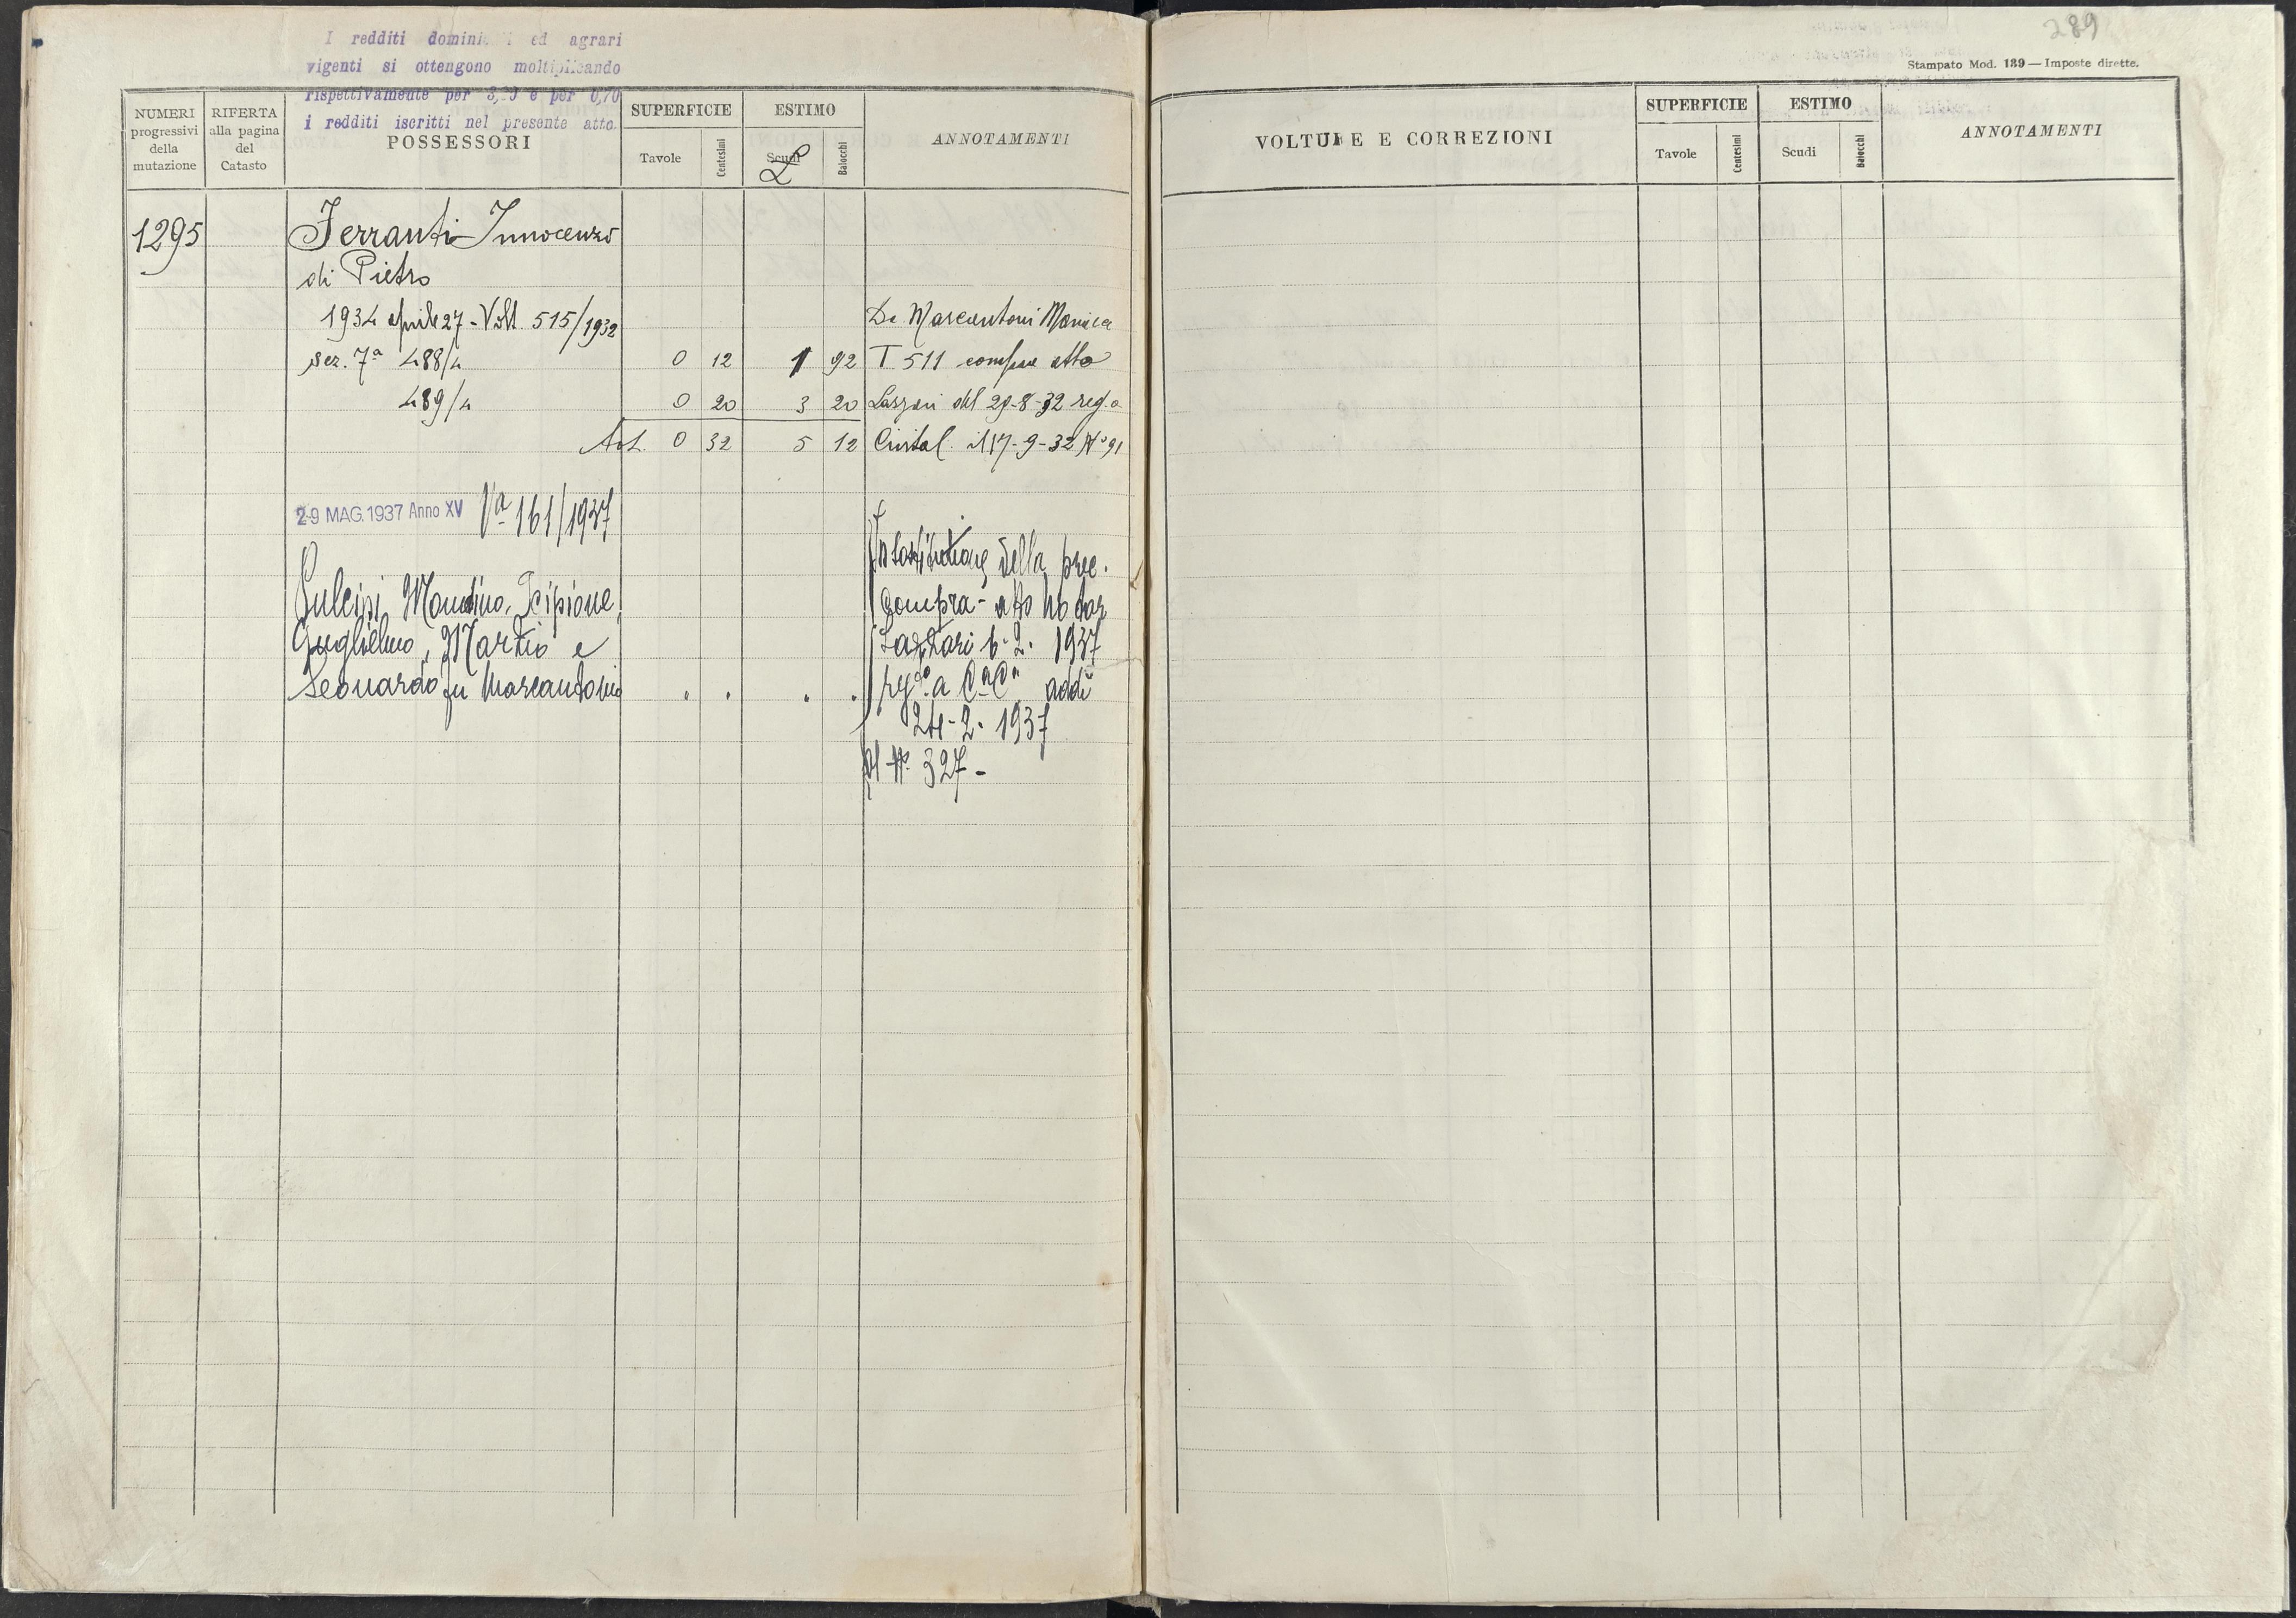 I redditi domini i ed agrari
vigenti si ottengono moltiplicando
rispettivamente per 3, 0 e per 0,70
i redditi iscritti nel presente atto.
NUMERI progressivi della mutazione
RIFERTA alla pagina del Catasto
POSSESSORI
SUPERFICIE
Tavole
Centesimi
ESTIMO
Scudi
£
Baiocchi
ANNOTAMENTI
1295
Ferranti Innocenzo
di Pietro
1934 aprile 27 - Volt. 515/1932
Da Marcantoni Monica
sez. 7ª 488/4 0 12 1 92 T 511 compra atto
489/4 0 20 3 20 Lazzari del 29-8-32 reg. a
Tot. 0 32 5 12 Civital. il 17-9-32 Nº 91
29 MAG. 1937 Anno XV Vª 161/1937
In sostituzione della prec.
Sulcipi, Scipione,
compra - atto Notar
Guglielmo, Marzio e
Lazzari 6-2-1937
Leonardo fu Marcantonio " " " "
a addì
24-2-1937
al Nº 327 -
289
Stampato Mod. 139 — Imposte dirette.
VOLTURE E CORREZIONI
SUPERFICIE
Tavole
Centesimi
ESTIMO
Scudi
Baiocchi
ANNOTAMENTI